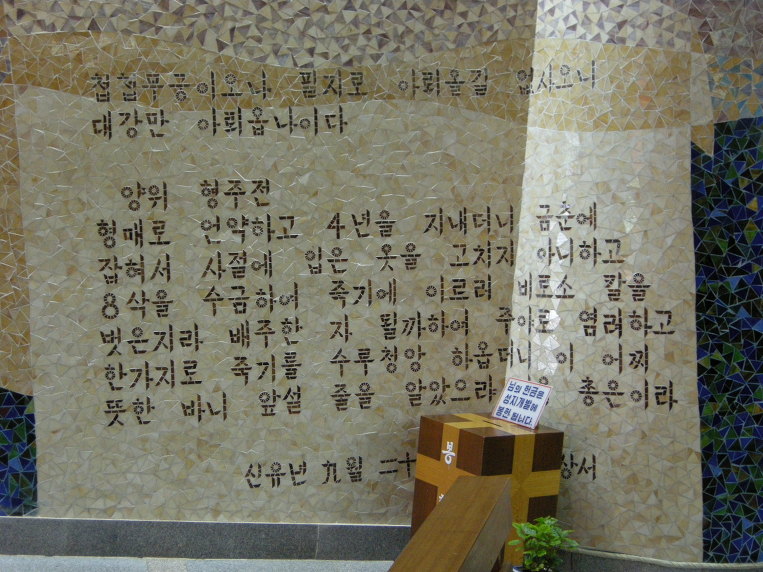 첩첩푸쿵이오나 필지로 아뢰올길 없사오니
대강만 아뢰옵나이다
양위 형주전
형매로 언약하고 4년을 지내더니 금춘에
잡혀서 사절에 입은 옷을 고치지 아니하고
8삭을 수금하여 죽기에 이르러 비로소 칼을
벗은지라 배주한 자 될까하여 주야로 염려하고
한가지로 죽기를 수루청앙 하옵더니 이 어찌
뜻한 바니 앞설 줄을 알았으랴 총은이라
신유년 九월 二十 상서
님의 헌금은
성지개발에
봉헌 됩니다.
봉